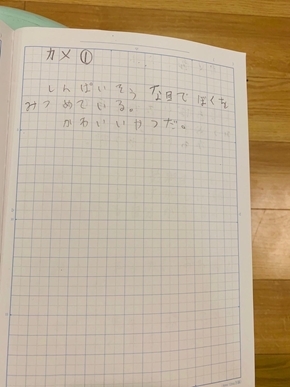 カメ①
しんぱいそうな目でぼくを
みつめている。
かわいいやつだ。